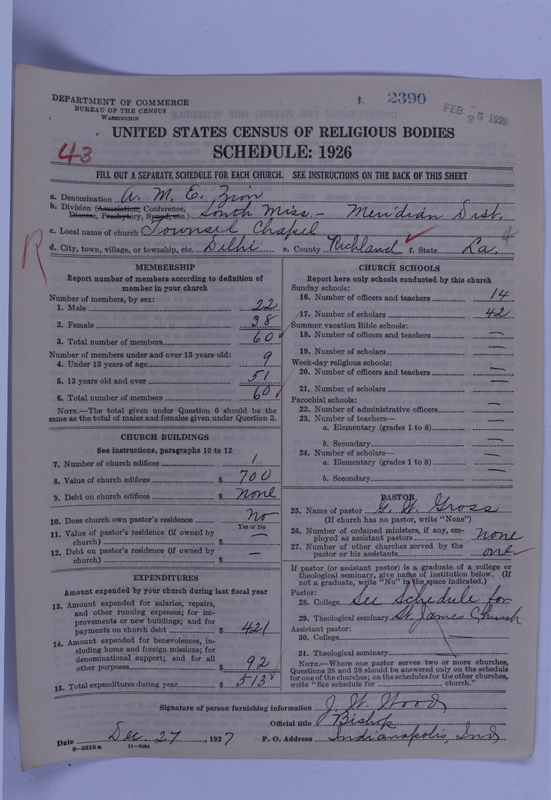 DEPARTMENT OF COMMERCE
BUREAU OF THE CENSUS
WASHINGTON
2390
FEB 25 1928
UNITED STATES CENSUS OF RELIGIOUS BODIES
43
SCHEDULE: 1926
FILL OUT A SEPARATE SCHEDULE FOR EACH CHURCH. SEE INSTRUCTIONS ON THE BACK OF THIS SHEET
a. Denomination A. M. E. Zion
b. Division (Association, Conference, Diocese, Presbytery, Synod, etc.) South Miss. - Meridian Dist.
c. Local name of church Townsel Chapel
d. City, town, village, or township, etc. Delhi e. County Richland f. State La.
R
MEMBERSHIP
Report number of members according to definition of
member in your church
Number of members, by sex:
1. Male 22
2. Female 38
3. Total number of members 60
Number of members under and over 13 years old:
4. Under 13 years of age 9
5. 13 years old and over 51
6. Total number of members 60
NOTE.—The total given under Question 6 should be the
same as the total of males and females given under Question 3.
CHURCH BUILDINGS
See instructions, paragraphs 10 to 12
7. Number of church edifices 1
8. Value of church edifices $ 700
9. Debt on church edifices $ none
10. Does church own pastor's residence No
Yes or No
11. Value of pastor's residence (if owned by
church) $ —
12. Debt on pastor's residence (if owned by
church) $ —
EXPENDITURES
Amount expended by your church during last fiscal year
13. Amount expended for salaries, repairs,
and other running expenses; for im-
provements or new buildings; and for
payments on church debt $ 421
14. Amount expended for benevolences, in-
cluding home and foreign missions; for
denominational support; and for all
other purposes $ 92
15. Total expenditures during year $ 513
CHURCH SCHOOLS
Report here only schools conducted by this church
Sunday schools:
16. Number of officers and teachers 14
17. Number of scholars 42
Summer vacation Bible schools:
18. Number of officers and teachers —
19. Number of scholars —
Week-day religious schools:
20. Number of officers and teachers —
21. Number of scholars —
Parochial schools:
22. Number of administrative officers —
23. Number of teachers—
a. Elementary (grades 1 to 8) —
b. Secondary —
24. Number of scholars—
a. Elementary (grades 1 to 8) —
b. Secondary —
PASTOR
25. Name of pastor G. W. Gross
(If church has no pastor, write "None")
26. Number of ordained ministers, if any, em-
ployed as assistant pastors none
27. Number of other churches served by the
pastor or his assistants one
If pastor (or assistant pastor) is a graduate of a college or
theological seminary, give name of institution below. (If
not a graduate, write "No" in the space indicated.)
Pastor:
28. College See Schedule for
29. Theological seminary St. James Church
Assistant pastor:
30. College
31. Theological seminary
NOTE.—Where one pastor serves two or more churches,
Questions 28 and 29 should be answered only on the schedule
for one of the churches; on the schedules for the other churches,
write "See schedule for church."
Signature of person furnishing information J. W. Wood
Official title Bishop
Date Dec 27, 1927 P. O. Address Indianapolis, Ind
8-5518a 11-9264